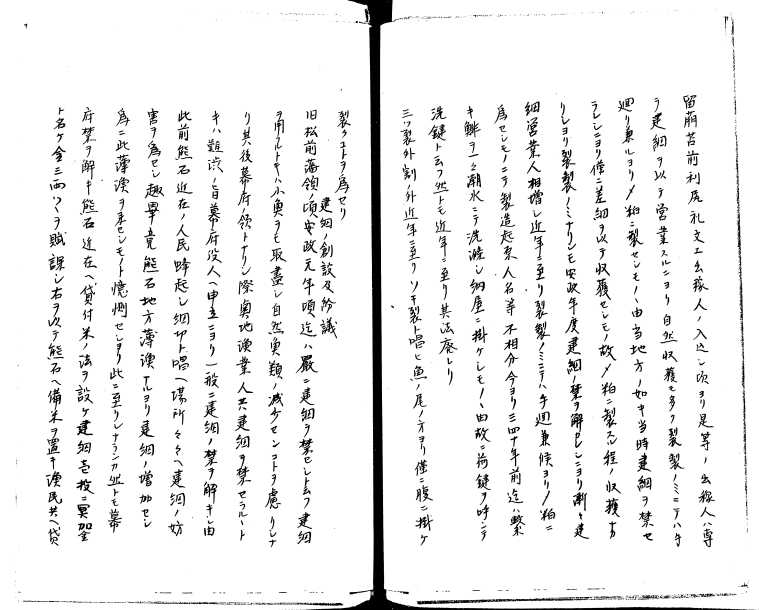 留萠苫前利尻礼文エ出稼人ノ入込シ頃ヨリ是等ノ出稼人ハ專
ラ建網ヲ以テ営業スルニヨリ自然収獲モ多ク裂製ノミニテハ手
廻リ兼ルヨリ〆粕ニ製セシモノヽ由当地方ノ如キ当時建網ヲ禁セ
ラレシニヨリ僅ニ差網ヲ以テ収獲セシモノ故〆粕ニ製スル程ノ収獲ナ
リシヨリ裂製ノミナリシモ安政年度建網ノ禁ヲ解レシニヨリ漸々建
網営業人相増シ近年ニ至リ裂製ノミニテハ手廻兼候ヨリ〆粕ニ
為セシモノニテ製造起業人名等不相分今ヨリ三四十年前迄ハ繋
キ鯡ヲ一々潮水ニテ洗滌シ納屋ニ掛ケシモノヽ由故ニ荷鍵ヲ呼ンテ
洗鍵ト云フ然トモ近年ニ至リ其法廃レリ
三ツ裂外割ノ外近年ニ至リソキ裂ト唱ヒ魚ノ尾ノ方ヨリ僅ニ腹ニ掛ケ
裂クコトヲ為セリ
建網ノ創設及紛議
旧松前藩領ノ頃安政元年頃迄ハ嚴ニ建網ヲ禁セシト云フ建網
ヲ用ルトキハ小魚ヲモ取盡シ自然魚類ノ減少センコトヲ慮リシナ
リ其後幕府ノ領トナリシ際奥地漁業人共建網ヲ禁セラルヽト
キハ難渋ノ旨幕府役人ヘ申立ニヨリ一般ニ建網ノ禁ヲ解キシ由
此前熊石近在ノ人民蜂起シ網切ト唱ヘ場所々々ヘ建網ノ妨
害ヲ為セシ趣畢竟熊石地方薄漁ナルヨリ建網ノ増加セシ
為ニ此薄漁ヲ来セシモノト憶測セシヨリ此ニ至リシナランカ然トモ幕
府禁ヲ解キ熊石近在ヘ貸付米ノ法ヲ設ケ建網壱投ニ冥加金
ト名ケ金三両ツヽヲ賦課シ右ヲ以テ熊石ヘ備米ヲ置キ漁民共ヘ貸